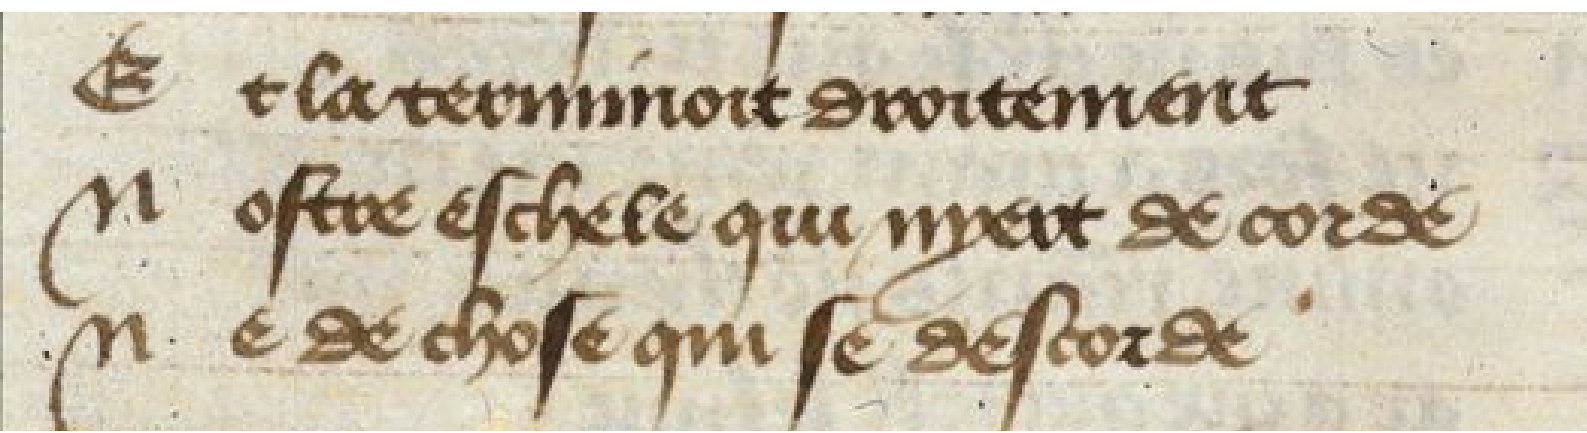 Et la terminoit droitement
Nostre eschele qui nyert de corde
Ne de chose qui se descorde